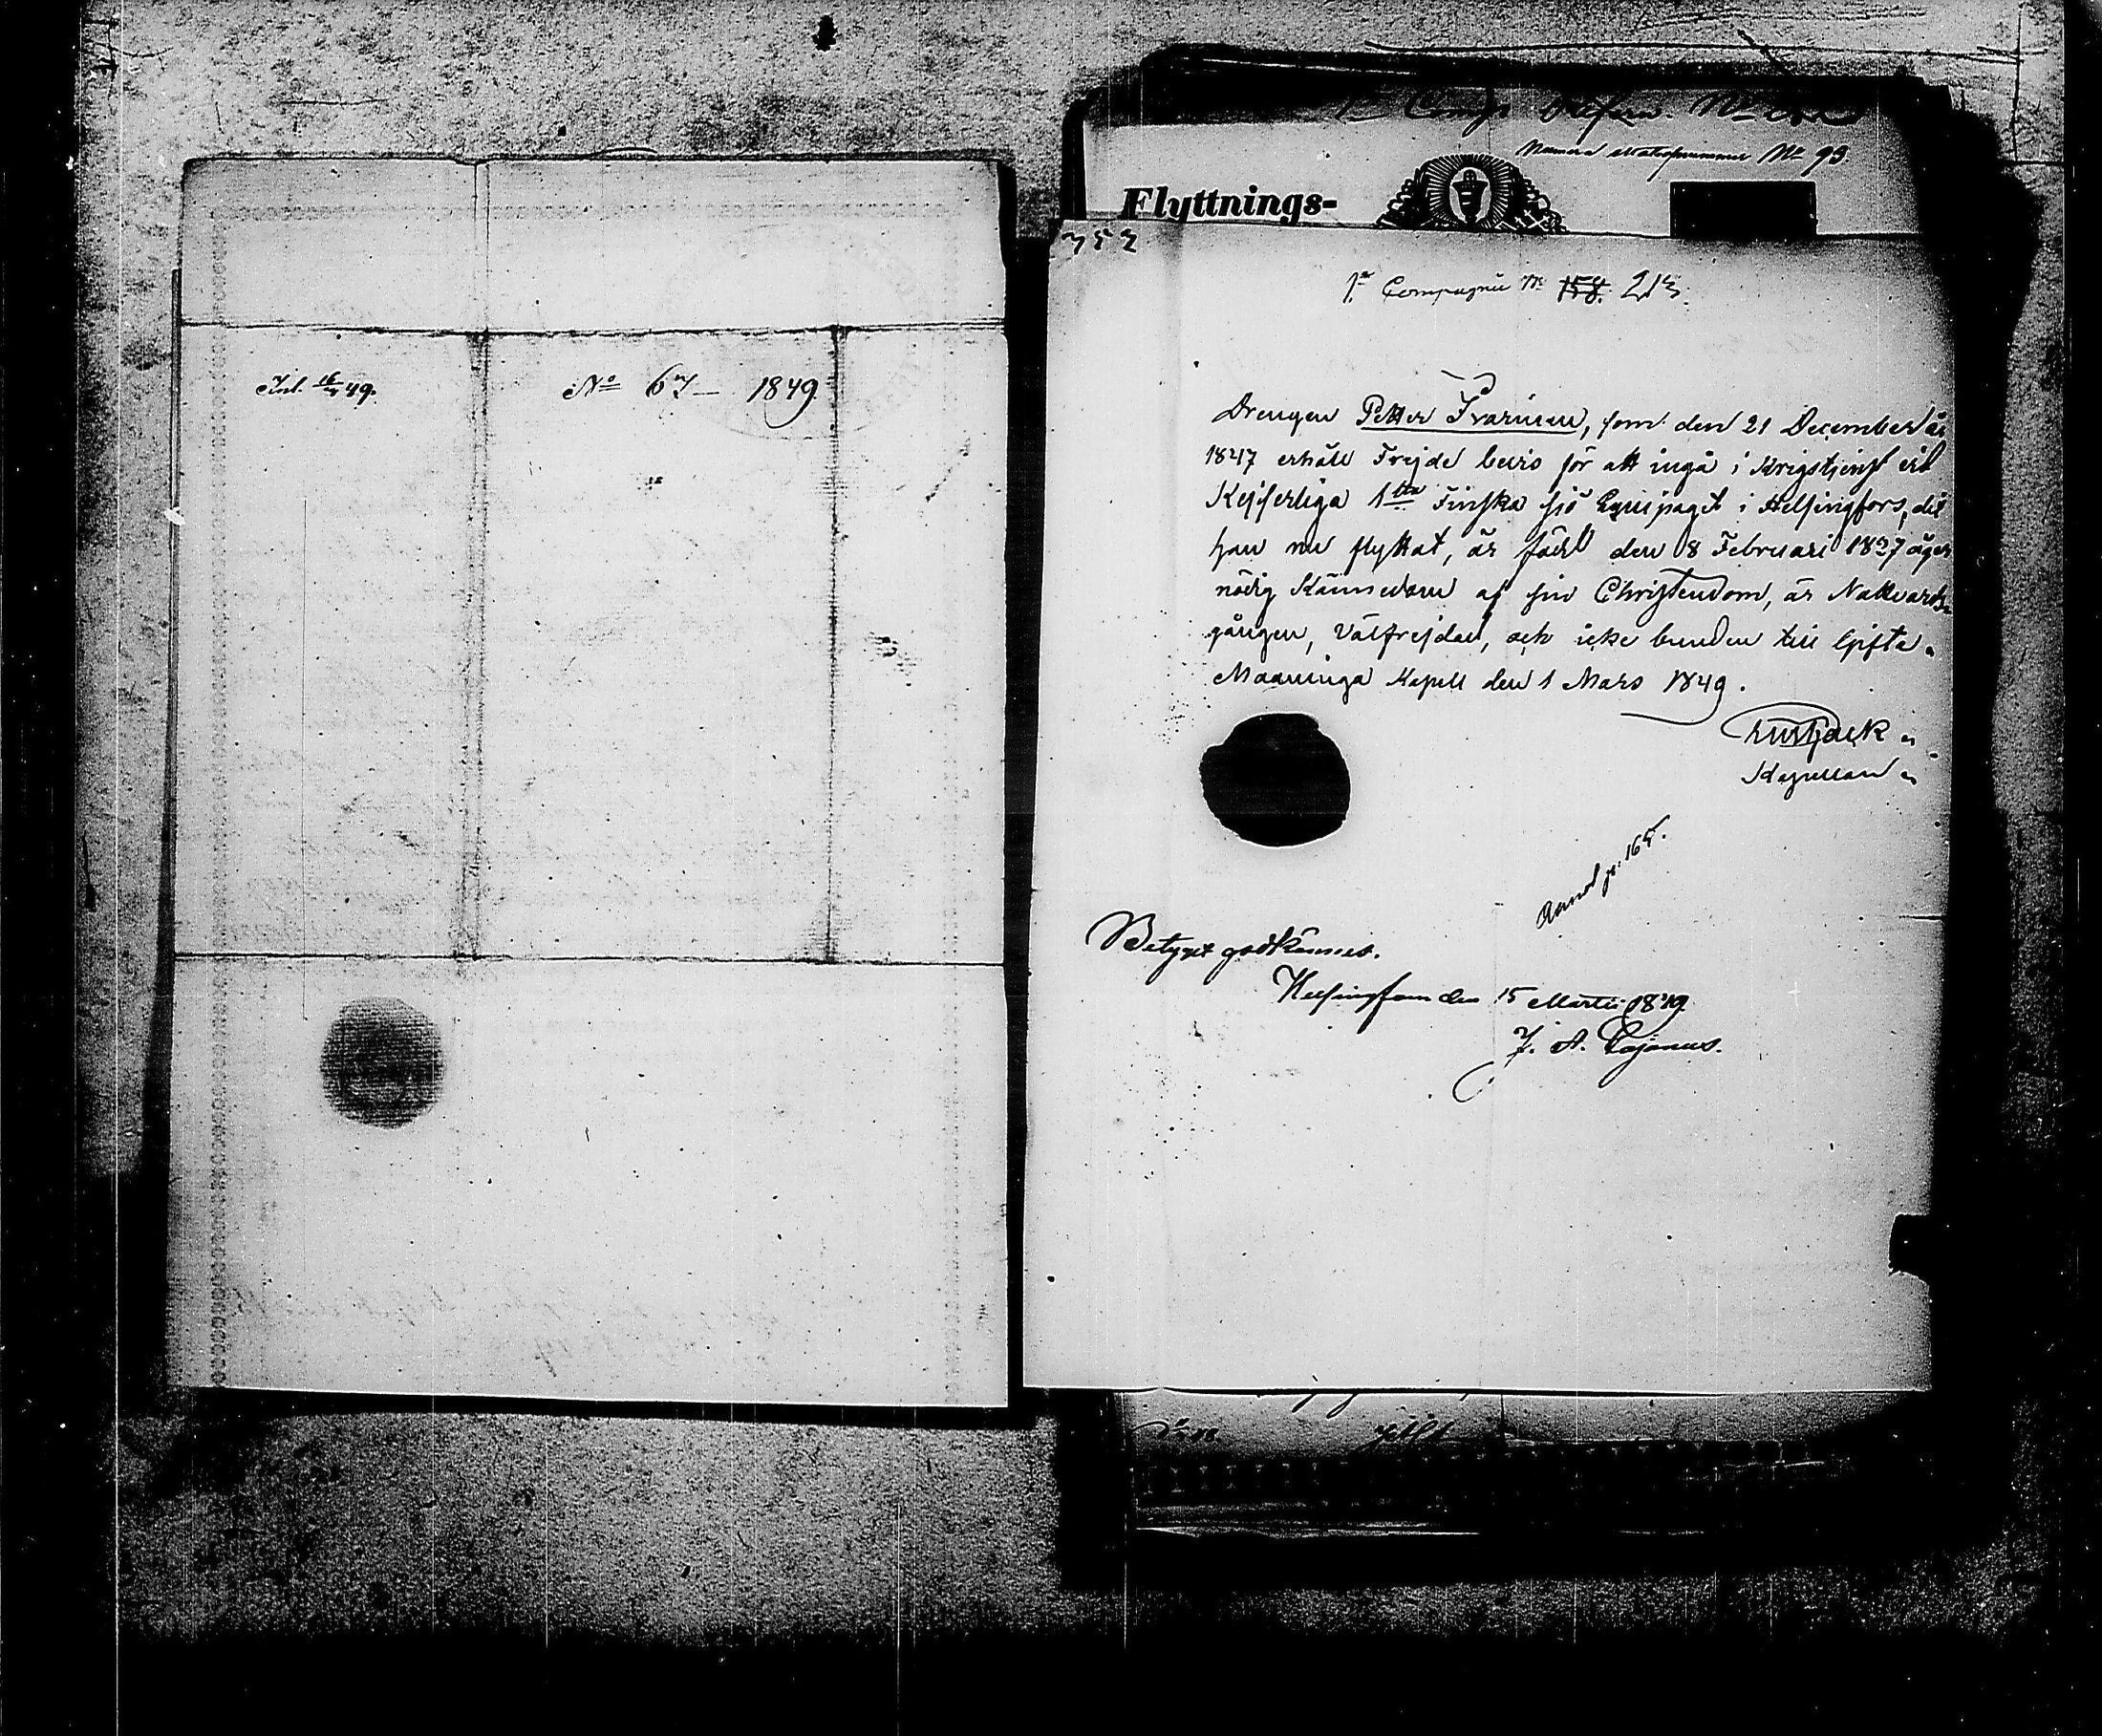 Inl. 16/3 49.
No 67 — 1849
Numera matrikelnummer No 93.
Flyttnings-
352
1a Compagnie No 158. 213.
Drengen Petter Ivarinen, som den 21 December år
1847 erhöll Frejde bevis för att ingå i Krigstjenst vid
Kejserliga 1sta Finska sjö Equipaget i Helsingfors, dit
han nu flyttat, är född den 8 Februari 1827 äger
nödig Kännedom af sin Christendom, är Nattvards-
gången, Välfrejdad, och icke bunden till Gifte.
Maaninga Kapell den 1 Mars 1849.
Kapellan
pg: 165.
Betyget godkännes.
Helsingfors den 15 Martii 1849
J. A. Cajanus.